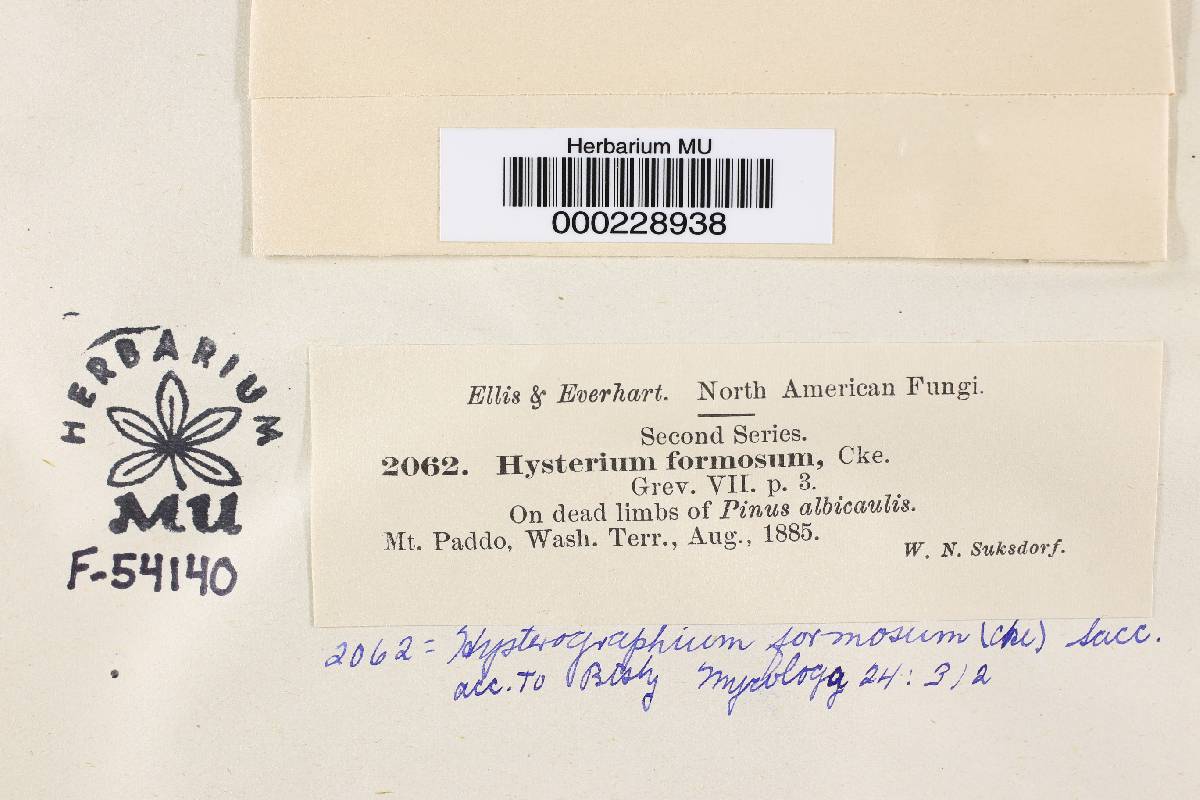 Herbarium MU
000228938
HERBARIUM
MU
F-54140
Ellis & Everhart. North American Fungi.
Second Series.
2062. Hysterium formosum, Cke.
Grev. VII. p. 3.
On dead limbs of Pinus albicaulis.
Mt. Paddo, Wash. Terr., Aug., 1885.
W. N. Suksdorf.
2062 = Hysterographium formosum (Cke) Sacc.
acc. To Bisby Mycologa 24: 312